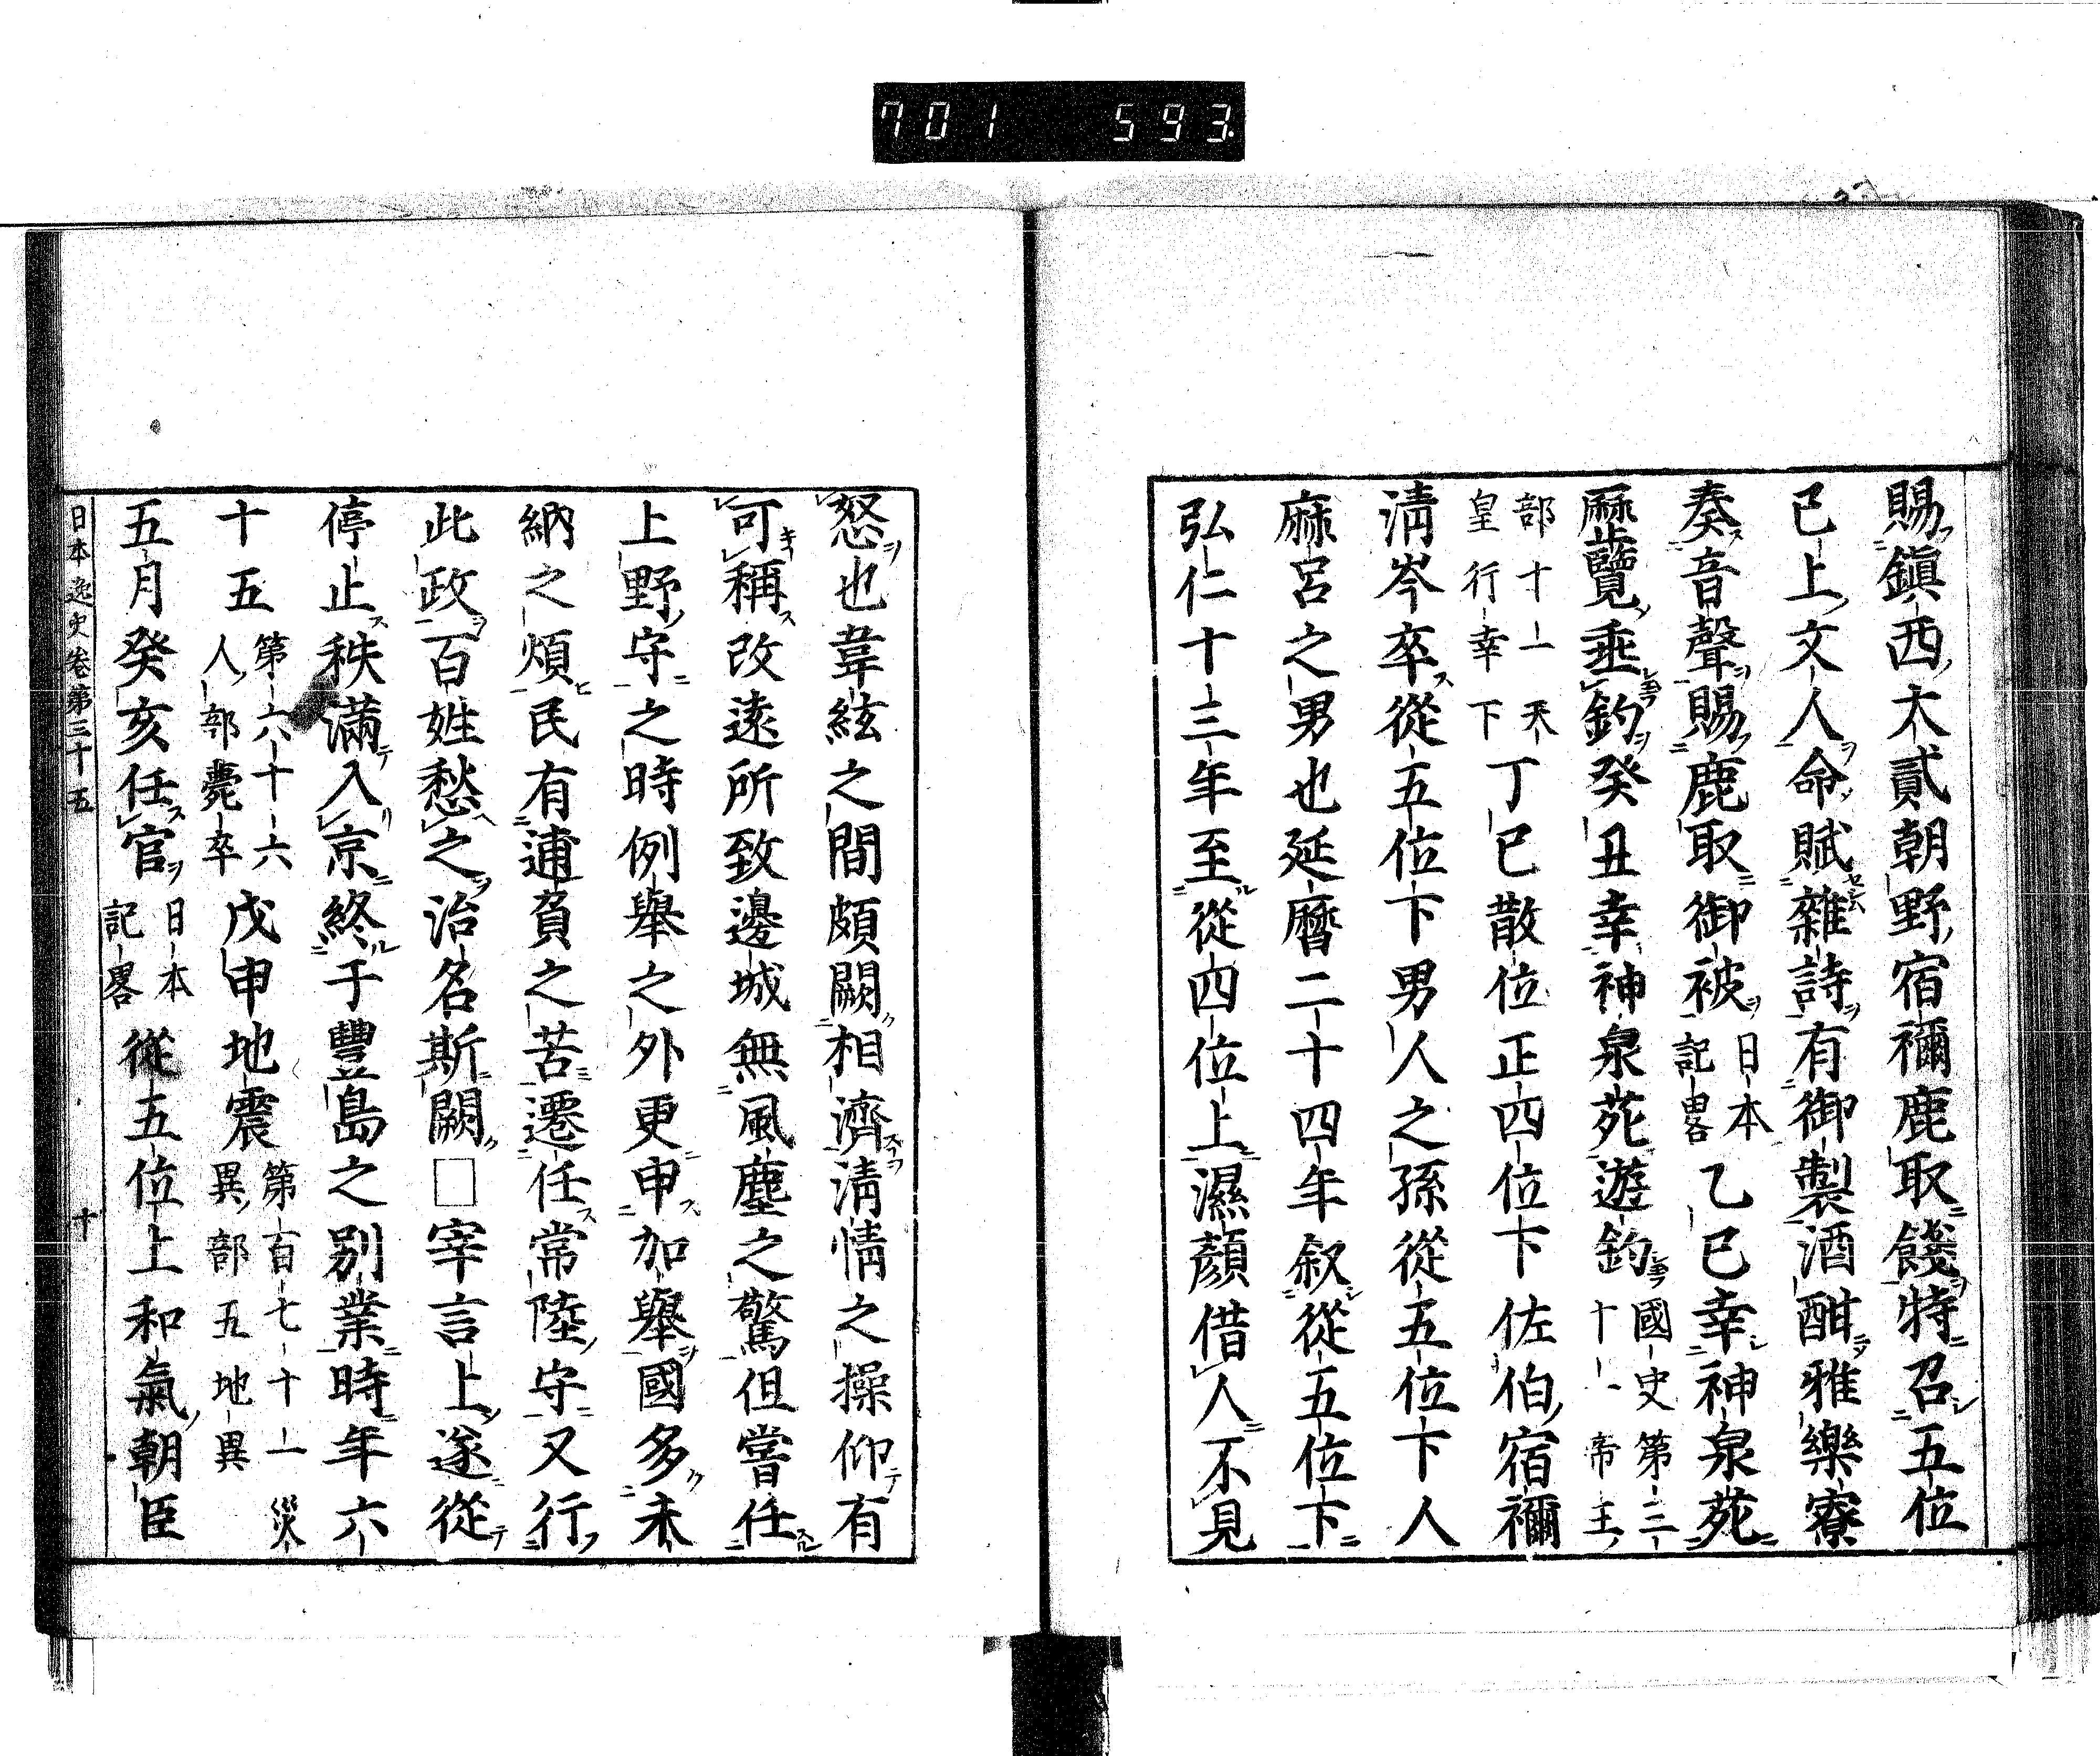 701 593
賜鎭西大貳朝野宿禰鹿取餞特召五位
已上文人命賦雜詩有御製酒酣雅樂寮
奏音聲賜鹿取御被日本記畧乙巳幸神泉苑
歷覽垂釣癸丑幸神泉苑遊釣國史第三十一帝王
部十一天皇行幸下丁巳散位正四位下佐伯宿禰
淸岑卒從五位下男人之孫從五位下人
麻呂之男也延曆二十四年叙從五位下
弘仁十三年至從四位上濕顏借人不見
怒也韋絃之間頗闕相濟淸情之操仰有
可稱改遠所致邊城無風塵之驚但嘗任
上野守之時例舉之外更申加舉國多未
納之煩民有逋負之苦遷任常陸守又行
此政百姓愁之治名斯闕□宰言上遂從
停止秩滿入京終于豐島之別業時年六
十五第六十六人部薨卒戊申地震第百七十一災異部五地異
五月癸亥任官日本記畧從五位上和氣朝臣
日本逸史卷第三十五 十